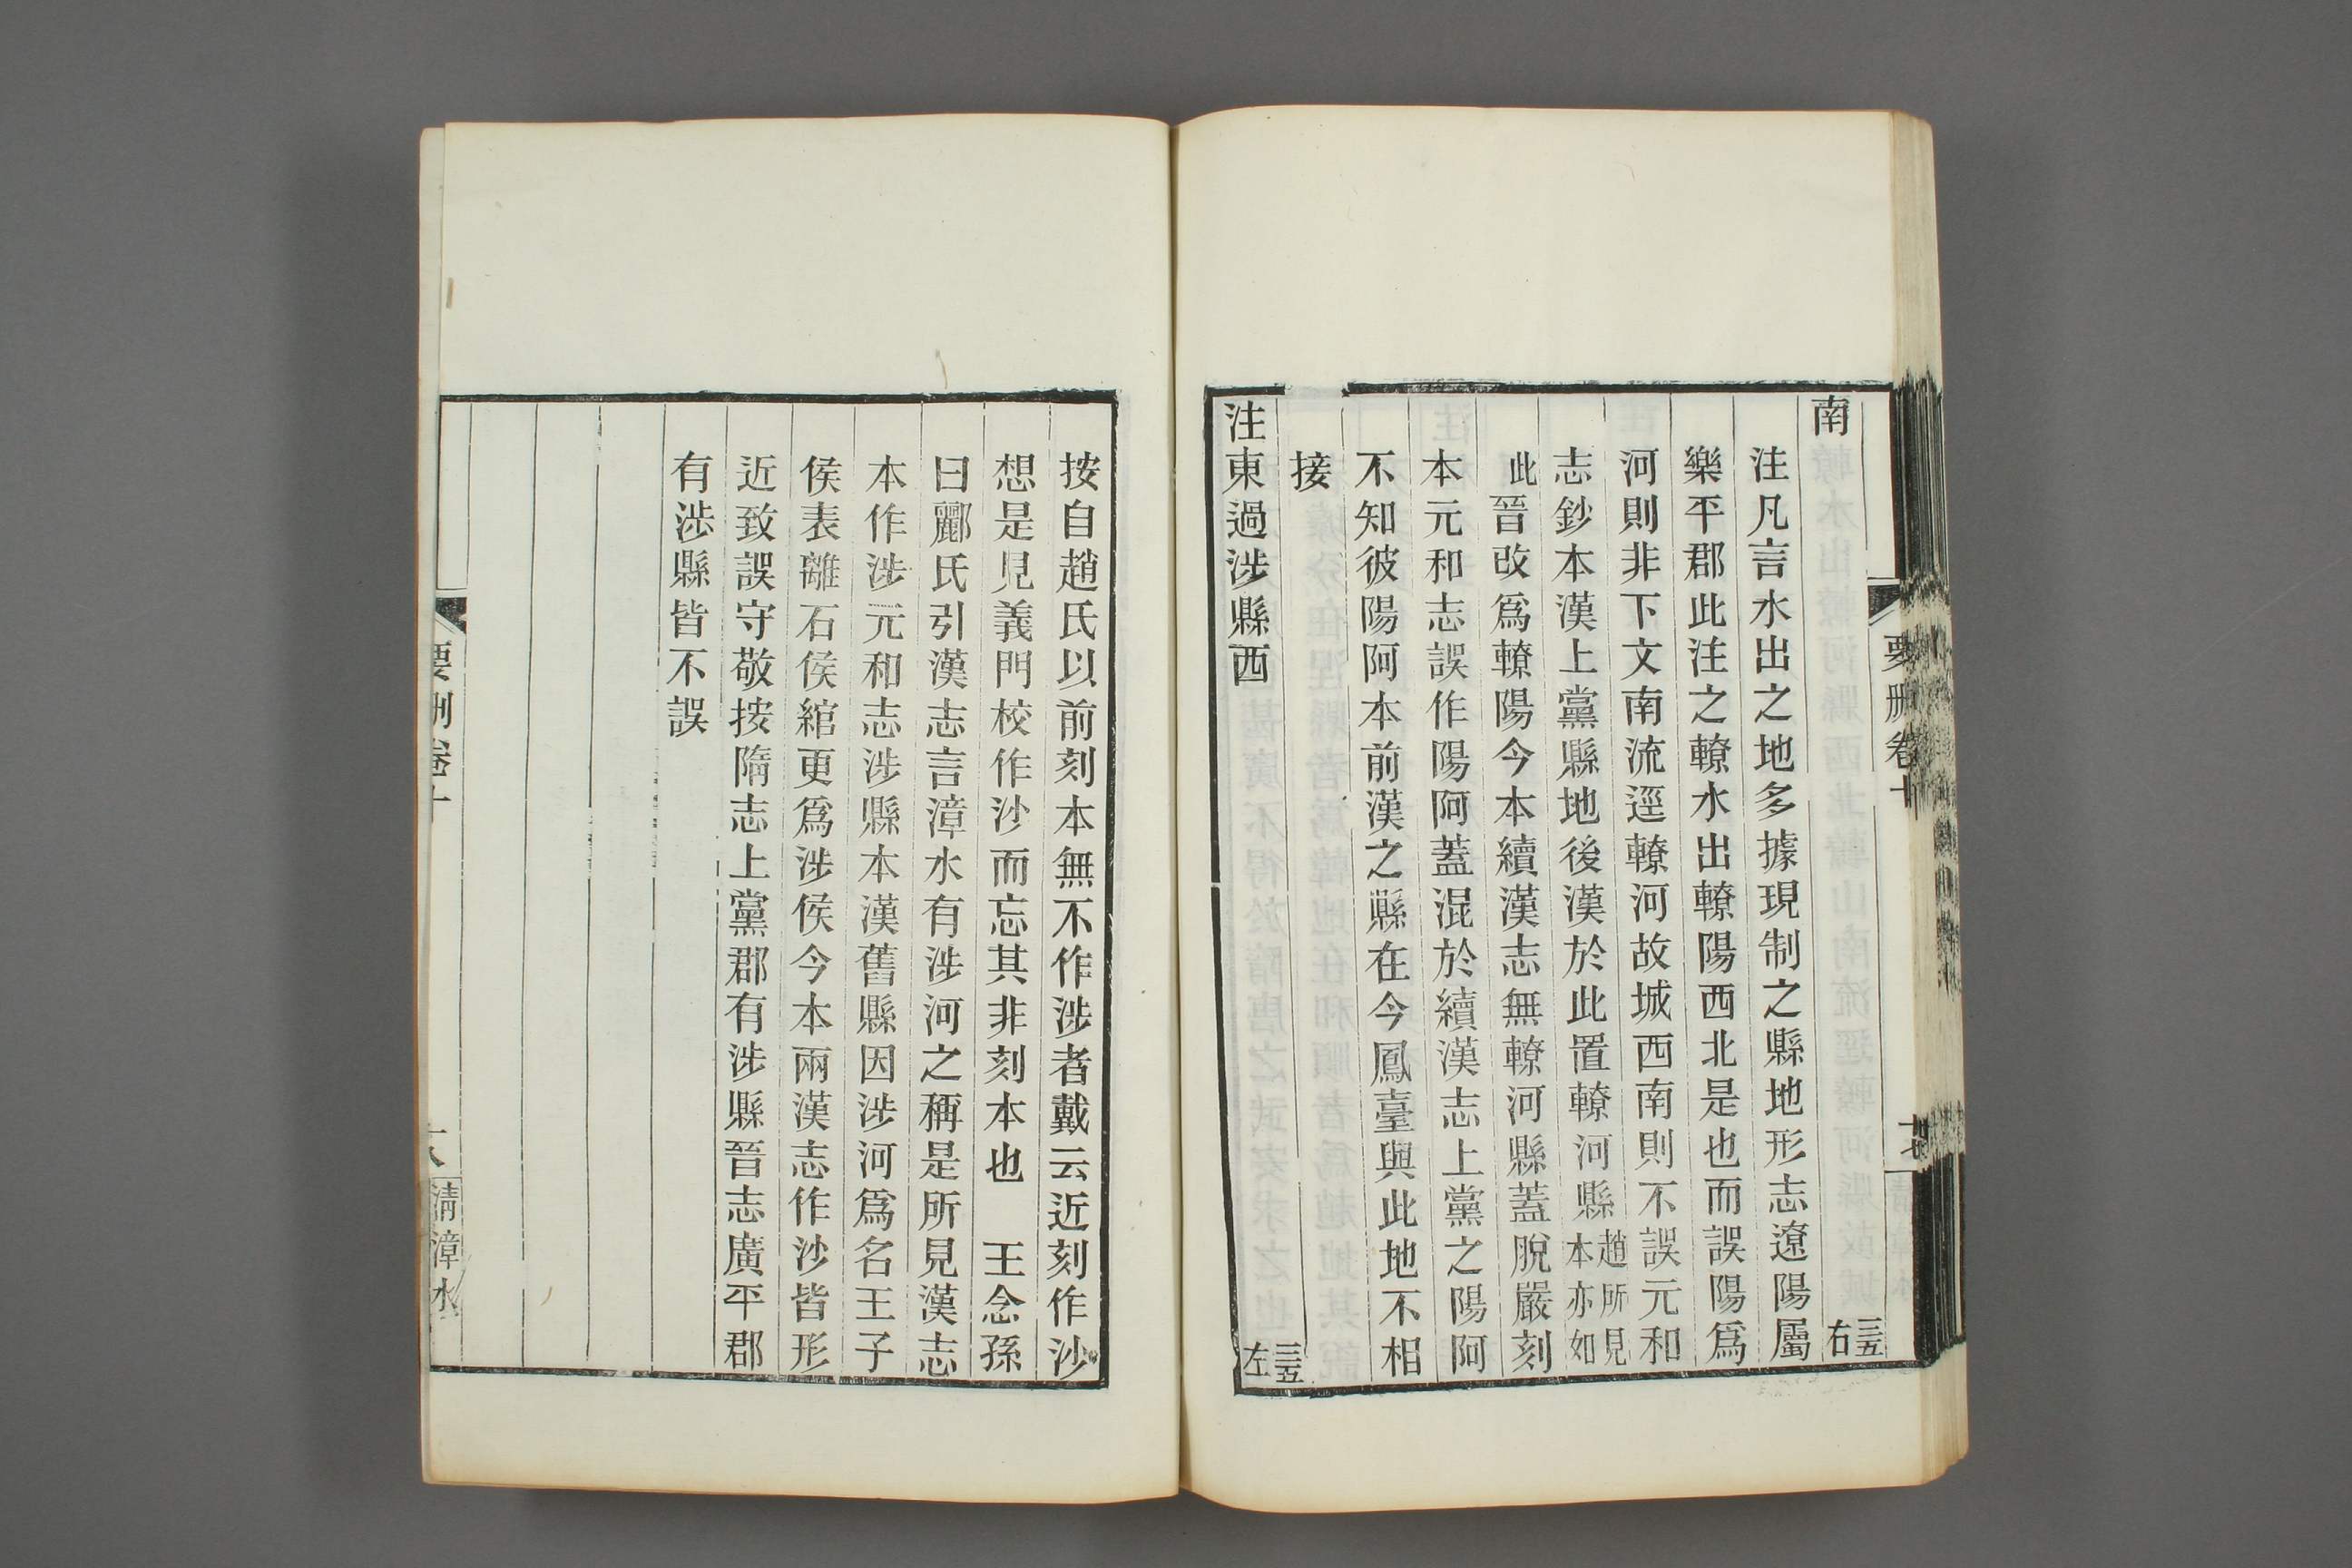 南 三五右
注凡言水出之地多據現制之縣地形志遼陽屬
樂平郡此注之轑水出轑陽西北是也而誤陽爲
河則非下文南流逕轑河故城西南則不誤元和
志鈔本漢上黨縣地後漢於此置轑河縣趙所見本亦如
此晉改爲轑陽今本續漢志無轑河縣蓋脫嚴刻
本元和志誤作陽阿蓋混於續漢志上黨之陽阿
不知彼陽阿本前漢之縣在今鳳臺與此地不相
接
注東過涉縣西 三五左
要刪卷十
十七
按自趙氏以前刻本無不作涉者戴云近刻作沙
想是見義門校作沙而忘其非刻本也 王念孫
曰酈氏引漢志言漳水有涉河之稱是所見漢志
本作涉元和志涉縣本漢舊縣因涉河爲名王子
侯表離石侯綰更爲涉侯今本兩漢志作沙皆形
近致誤守敬按隋志上黨郡有涉縣晉志廣平郡
有涉縣皆不誤
要刪卷十
十八
清漳水